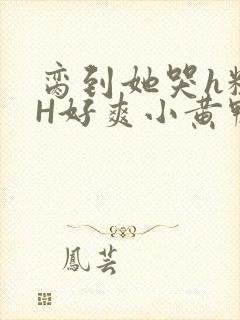 脔到她哭h粗
H好爽小黄鸭
鳳芸